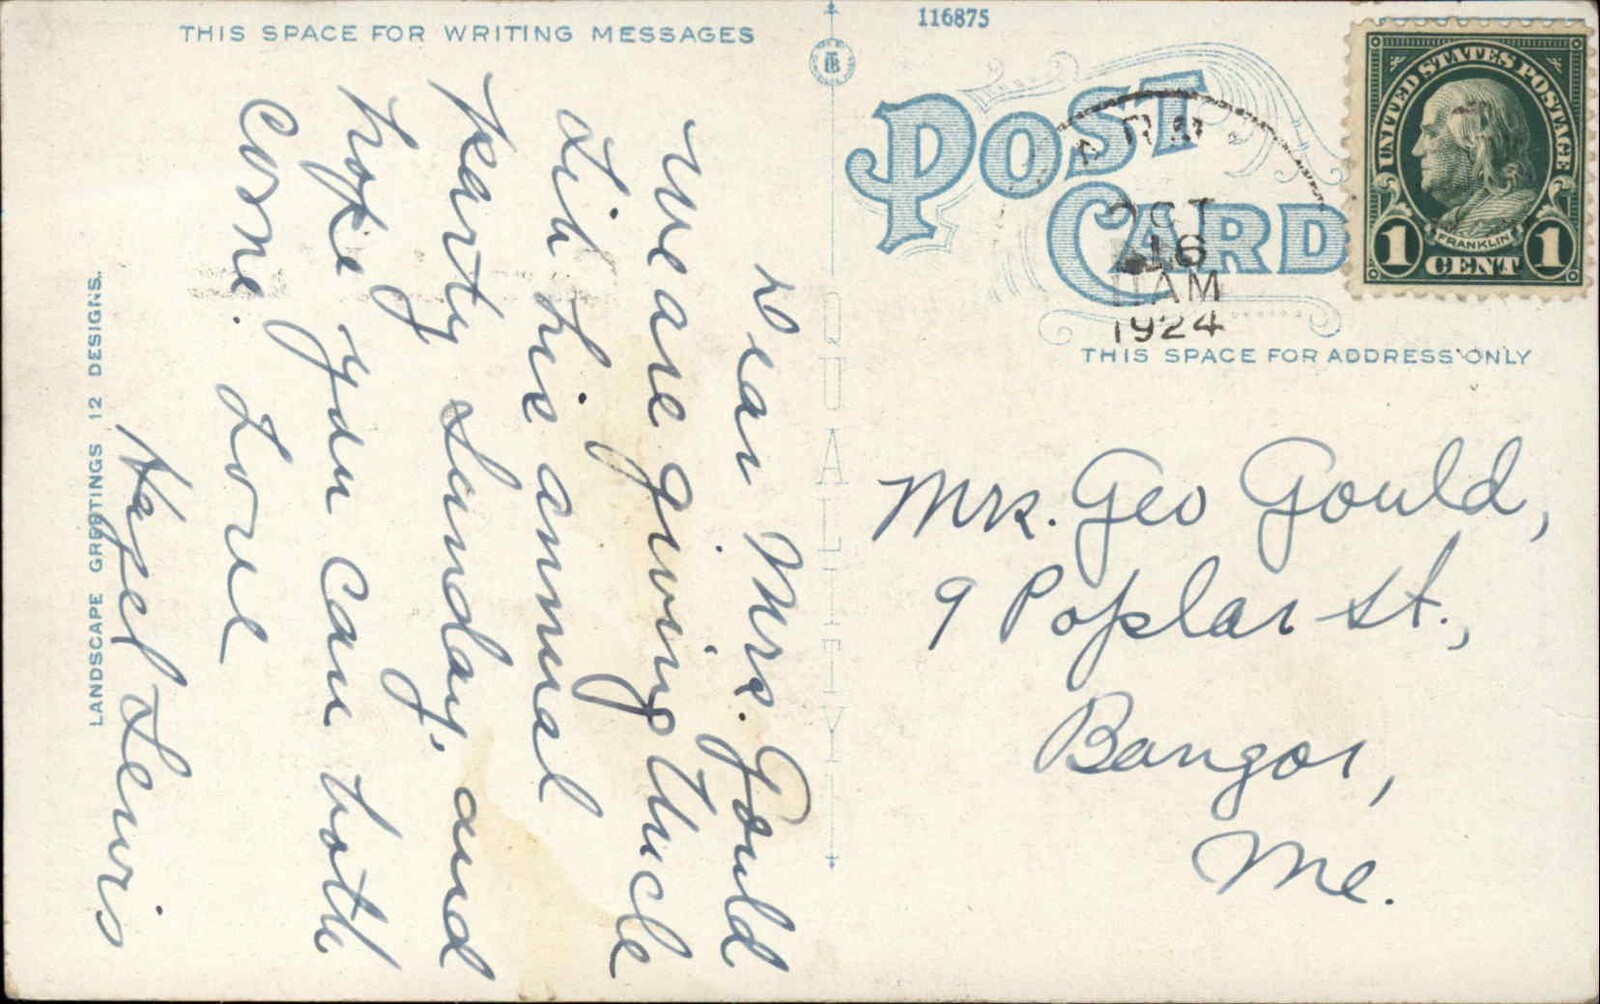 THIS SPACE FOR WRITING MESSAGES
116875
POST
CARD
UNITED STATES POSTAGE
FRANKLIN
1 CENT 1
OCT
16
11 AM
1924
THIS SPACE FOR ADDRESS ONLY
QUALITY
LANDSCAPE GREETINGS 12 DESIGNS.
Dear Mrs. Gould
We are giving Uncle
Lih his annual
party Sunday, and
hope you can both
come. Love
Hazel Lewis
Mrs. Geo Gould,
9 Poplar St.,
Bangor,
Me.